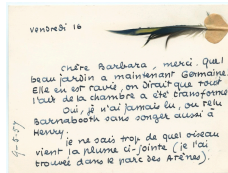 vendredi 16
chère Barbara, merci. quel
beau jardin a maintenant Germaine.
Elle en est ravie, on dirait que tout
l'art de la chambre a été transformé.
Oui, je n'ai jamais lu, ou relu
Barnabooth sans songer aussi à
Henry.
je ne sais trop de quel oiseau
vient la plume ci-jointe (je l'ai
trouvée dans le parc des Arènes).